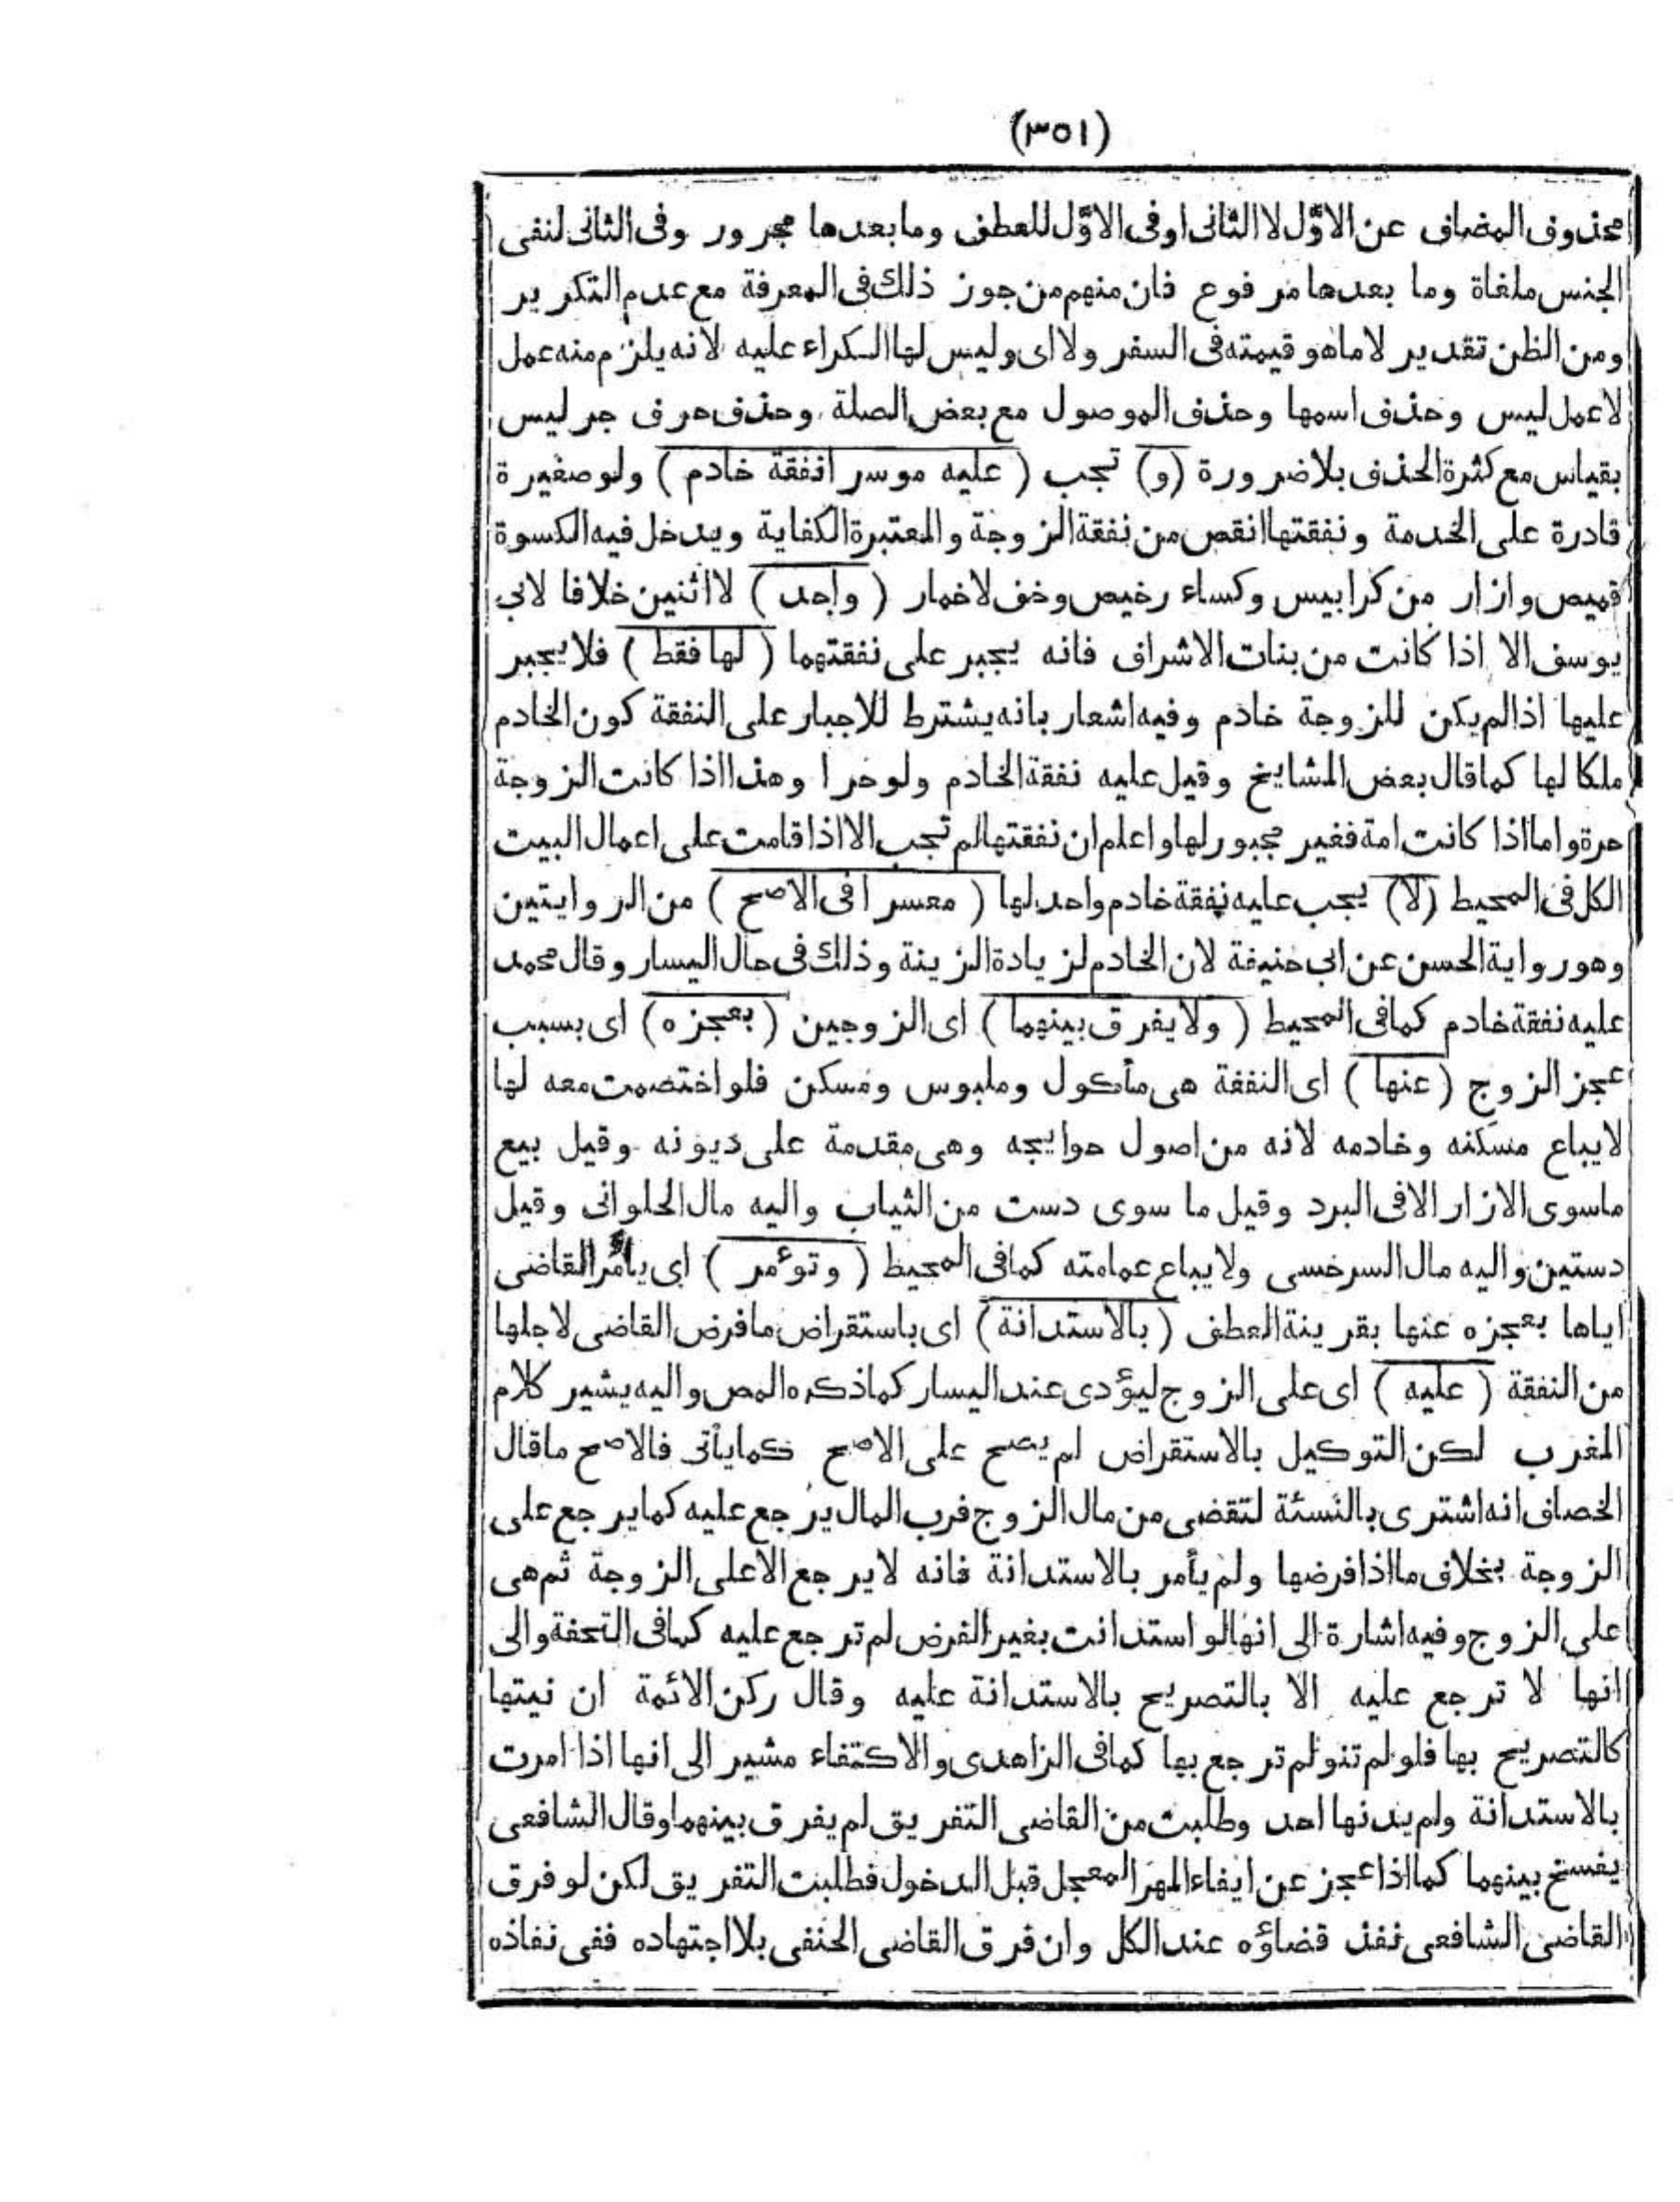 (٣٥١)
محذوف المضاف عن الاوّل لا الثانى او فى الاوّل للعطف وما بعدها مجرور وفى الثانى لنفى
الجنس ملغاة وما بعدها مرفوع فان منهم من جوز ذلك فى المعرفة مع عدم التكرير
ومن الظن تقدير لا ما هو قيمته فى السفر ولا اى وليس لها الكراء عليه لانه يلزم منه عمل
لا عمل ليس وحذف اسمها وحذف الموصول مع بعض الصلة وحذف حرف جر ليس
بقياس مع كثرة الحذف بلا ضرورة (و) تجب (عليه موسرا نفقة خادم) ولو صغيرة
قادرة على الخدمة ونفقتها انقص من نفقة الزوجة والمعتبرة الكفاية ويدخل فيه الكسوة
قميص وازار من كرابيس وكساء رخيص وخف لا خمار (واحد) لا اثنين خلافا لابى
يوسف الا اذا كانت من بنات الاشراف فانه يجبر على نفقتهما (لها فقط) فلا يجبر
عليها اذا لم يكن للزوجة خادم وفيه اشعار بانه يشترط للاجبار على النفقة كون الخادم
ملكا لها كما قال بعض المشايخ وقيل عليه نفقة الخادم ولو حرا وهذا اذا كانت الزوجة
حرة واما اذا كانت امة فغير مجبور لها واعلم ان نفقتها لم تجب الا اذا قامت على اعمال البيت
الكل فى المحيط (لا) يجب عليه نفقة خادم واحد لها (معسرا فى الاصح) من الروايتين
وهو رواية الحسن عن ابى حنيفة لان الخادم لزيادة الزينة وذلك فى حال اليسار وقال محمد
عليه نفقة خادم كما فى المحيط (ولا يفرق بينهما) اى الزوجين (بعجزه) اى بسبب
عجز الزوج (عنها) اى النفقة هى مأكول وملبوس ومسكن فلو اختصمت معه لها
لا يباع مسكنه وخادمه لانه من اصول حوايجه وهى مقدمة على ديونه وقيل بيع
ما سوى الازار الا فى البرد وقيل ما سوى دست من الثياب واليه مال الحلوانى وقيل
دستين واليه مال السرخسى ولا يباع عمامته كما فى المحيط (وتوءمر) اى يأمر القاضى
اياها بعجزه عنها بقرينة العطف (بالاستدانة) اى باستقراض ما فرض القاضى لاجلها
من النفقة (عليه) اى على الزوج ليؤدى عند اليسار كما ذكره المص واليه يشير كلام
المغرب لكن التوكيل بالاستقراض لم يصح على الاصح كما يأتى فالاصح ما قال
الخصاف انه اشترى بالنسئة لتقضى من مال الزوج فرب المال يرجع عليه كما يرجع على
الزوجة بخلاف ما اذا فرضها ولم يأمر بالاستدانة فانه لا يرجع الا على الزوجة ثم هى
على الزوج وفيه اشارة الى انها لو استدانت بغير الفرض لم ترجع عليه كما فى التحفة والى
انها لا ترجع عليه الا بالتصريح بالاستدانة عليه وقال ركن الائمة ان نيتها
كالتصريح بها فلو لم تنو لم ترجع بها كما فى الزاهدى والاكتفاء مشير الى انها اذا امرت
بالاستدانة ولم يدنها احد وطلبت من القاضى التفريق لم يفرق بينهما وقال الشافعى
يفسخ بينهما كما اذا عجز عن ايفاء المهر المعجل قبل الدخول فطلبت التفريق لكن لو فرق
القاضى الشافعى نفذ قضاؤه عند الكل وان فرق القاضى الحنفى بلا اجتهاده ففى نفاذه